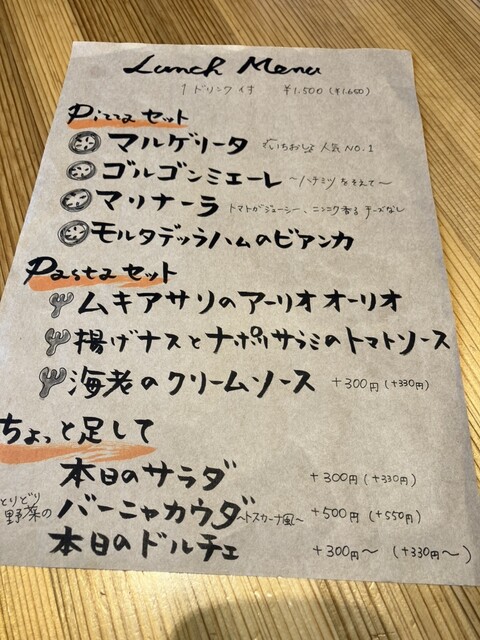 Lunch Menu
1ドリンク付 ¥1.500(¥1.650)
Pizzaセット
マルゲリータ 人気NO.1
ゴルゴンミエーレ ～ハチミツをそえて～
マリナーラ トマトがジューシー、ニンニク香る チーズなし
モルタデッラハムのビアンカ
Pastaセット
ムキアサリのアーリオオーリオ
揚げナスとナポリサラミのトマトソース
海老のクリームソース +300円(+330円)
ちょっと足して
本日のサラダ +300円(+330円)
とりどり野菜のバーニャカウダ～トスカーナ風～ +500円(+550円)
本日のドルチェ +300円～(+330円～)